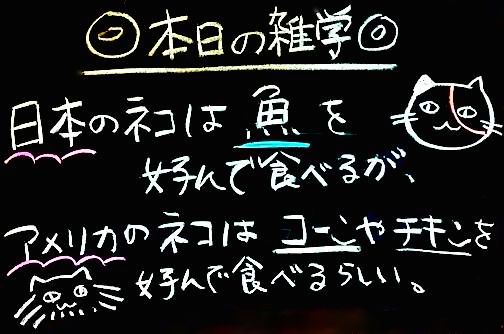 ◎本日の雑学◎
日本のネコは魚を
好んで食べるが、
アメリカのネコはコーンやチキンを
好んで食べるらしい。